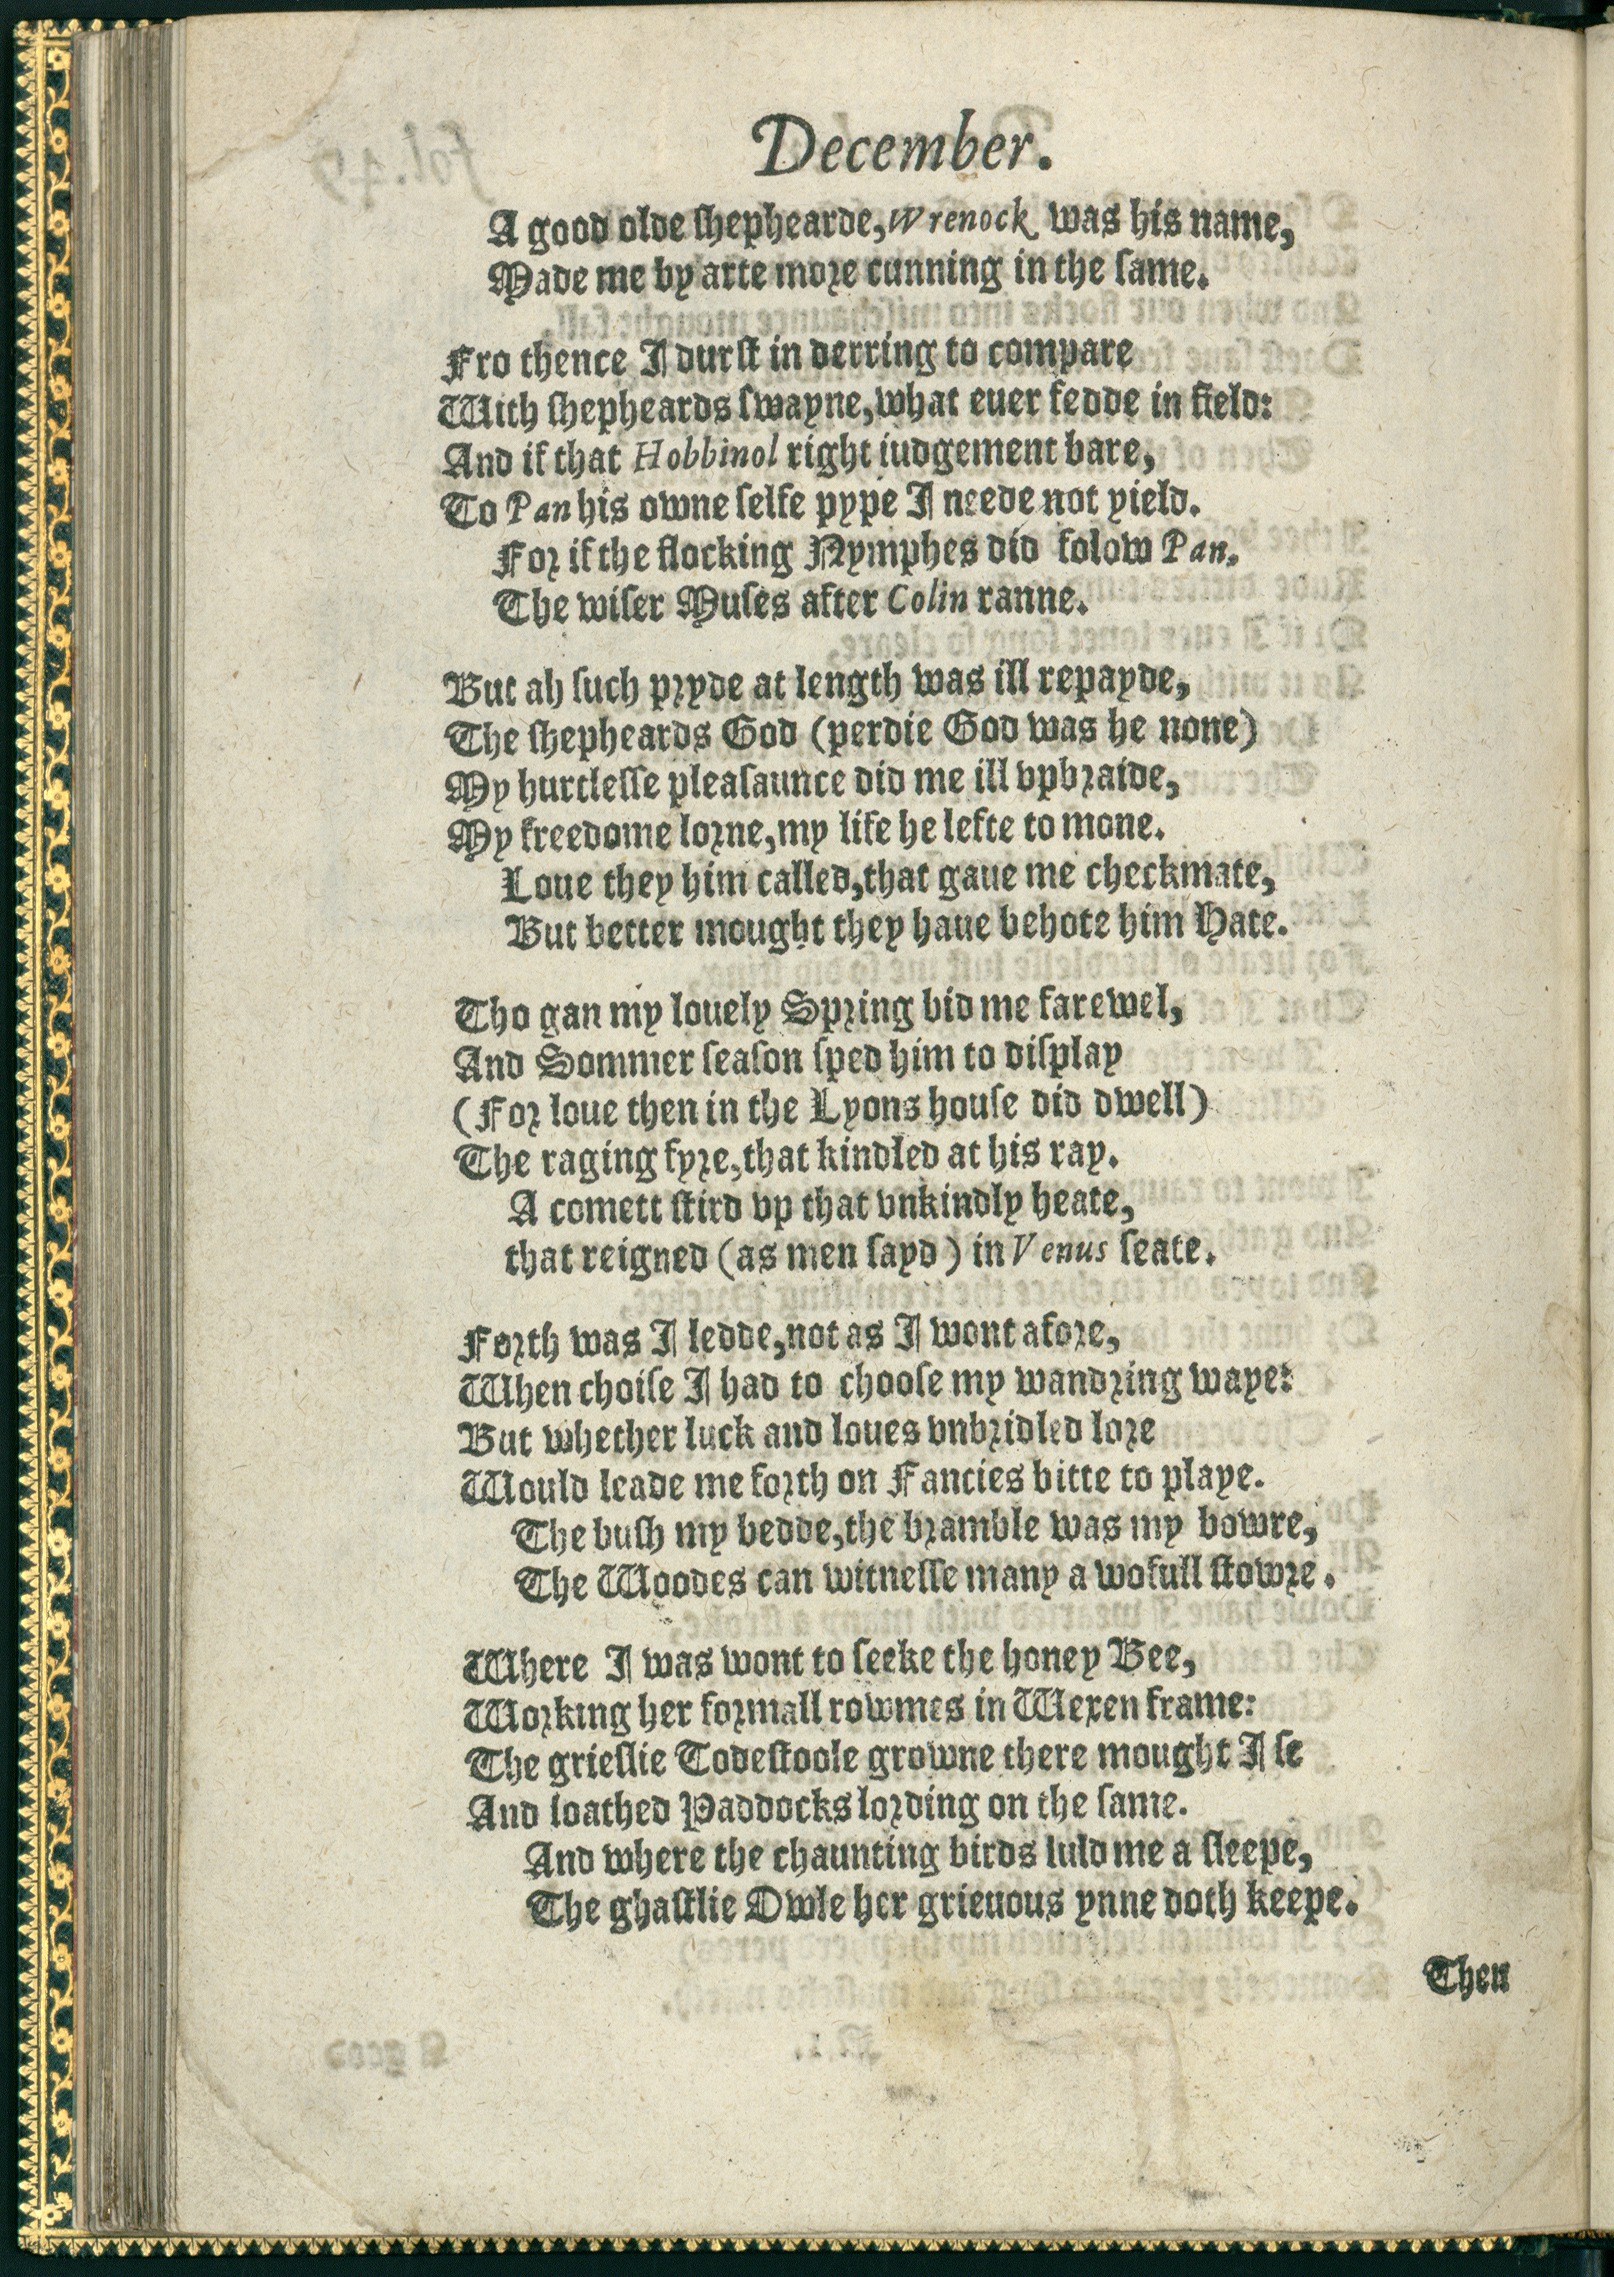 December.
A good olde shephearde, Wrenock was his name,
Made me by arte more cunning in the same.
Fro thence I durst in derring to compare
With shepheards swayne, what euer fedde in field:
And if that Hobbinol right iudgement bare,
To Pan his owne selfe pype I neede not yield.
For if the flocking Nymphes did folow Pan,
The wiser Muses after Colin ranne.
But ah such pryde at length was ill repayde,
The shepheards God (perdie God was he none)
My hurtlesse pleasaunce did me ill vpbraide,
My freedome lorne, my life he lefte to mone.
Loue they him called, that gaue me checkmate,
But better mought they haue behote him Hate.
Tho gan my louely Spring bid me farewel,
And Sommer season sped him to display
(For loue then in the Lyons house did dwell)
The raging fyre, that kindled at his ray.
A comett stird vp that vnkindly heate,
that reigned (as men sayd) in Venus seate.
Forth was I ledde, not as I wont afore,
When choise I had to choose my wandring waye:
But whether luck and loues vnbridled lore
Would leade me forth on Fancies bitte to playe.
The bush my bedde, the bramble was my bowre,
The Woodes can witnesse many a wofull stowre.
Where I was wont to seeke the honey Bee,
Working her formall rowmes in Wexen frame:
The grieslie Todestoole growne there mought I se
And loathed Paddocks lording on the same.
And where the chaunting birds luld me a sleepe,
The ghastlie Owle her grieuous ynne doth keepe.
Then